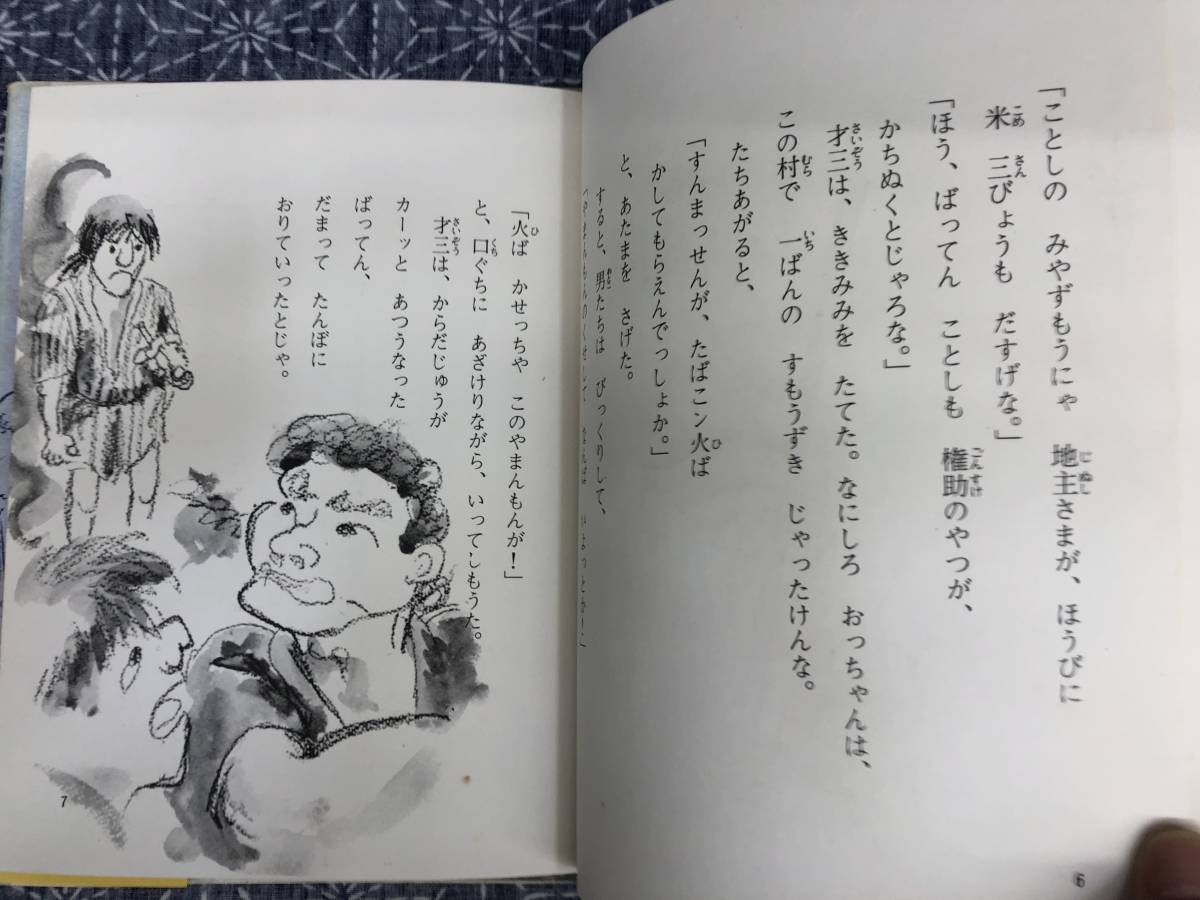 「ことしの みやずもうにゃ 地主さまが、ほうびに
米 三びょうも だすげな。」
「ほう、ばってん ことしも 権助のやつが、
かちぬくとじゃろな。」
才三は、ききみみを たてた。なにしろ おっちゃんは、
この村で 一ばんの すもうずき じゃったけんな。
たちあがると、
「すんまっせんが、たばこン火ば
かしてもらえんでっしょか。」
と、あたまを さげた。
すると、男たちは びっくりして、
6
「火ば かせっちゃ このやまんもんが！」
と、口ぐちに あざけりながら、いってしもうた。
才三は、からだじゅうが
カーッと あつうなった
ばってん、
だまって たんぼに
おりていったとじゃ。
7